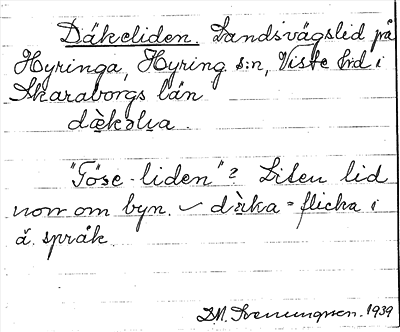 Däkeliden. Landsvägslid på
Hyringa, Hyring s:n, Viste hrd i
Skaraborgs län
dä̀kəlia.
"Töse-liden"? Liten lid
norr om byn. ✓ dä̀ka = flicka i
ä. språk.
1939